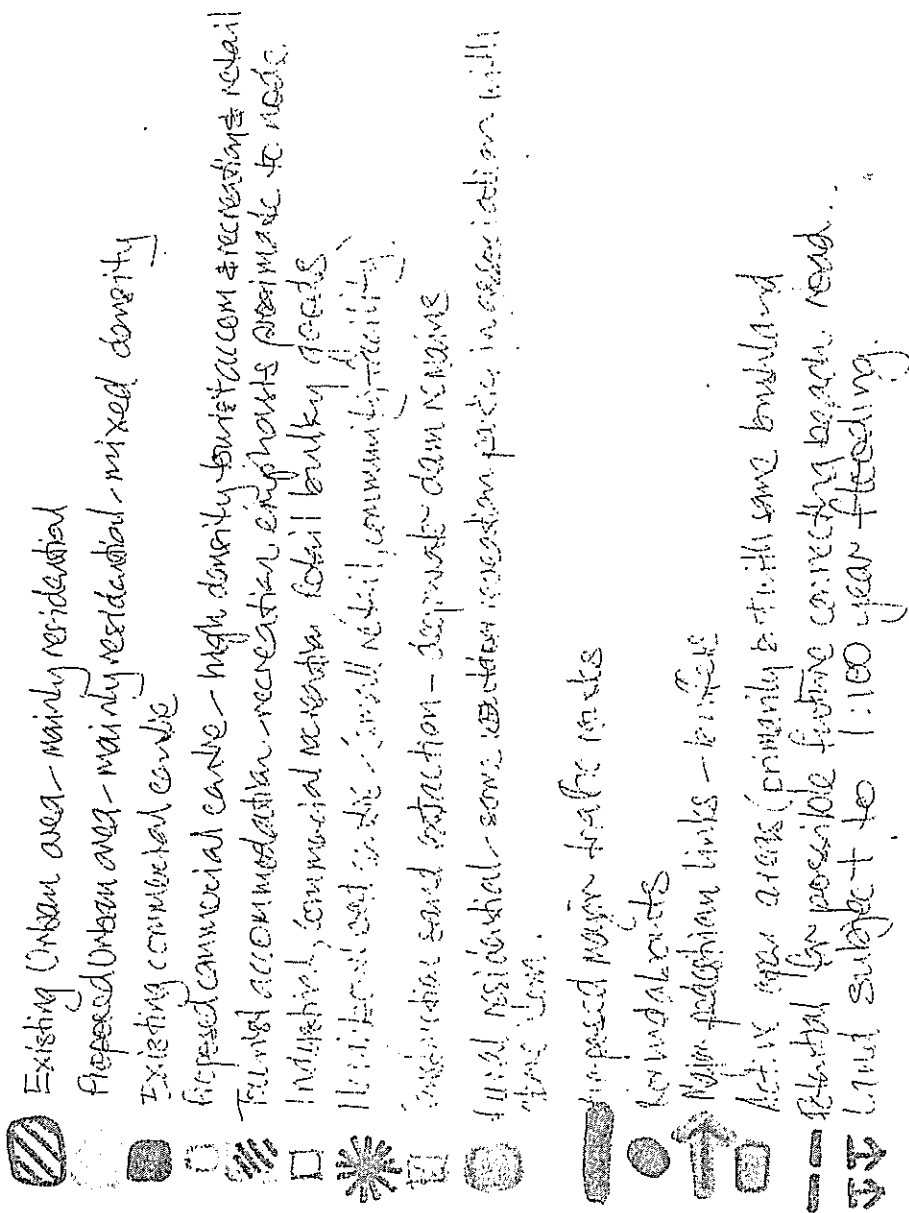 Existing Urban area - mainly residential
Proposed Urban area - mainly residential - mixed density
Existing commercial centre
Proposed commercial centre - high density tourist accom & recreation & retail
Tourist accommodation - recreation emphasis proximate to node.
Industrial, commercial recreation retail bulky goods
small retail, community facility.
sand extraction - dam remains
rural residential - some recreation in association with
Proposed major traffic routes
Roundabouts
Major pedestrian links - buffers
Active open areas (primarily with some bushland
Potential for possible future connecting beach road..
Land subject to 1:100 year flooding.